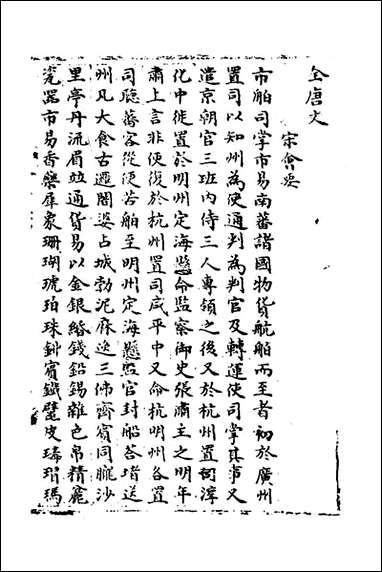 全唐文
宋會要
市舶司掌市易南蕃諸國物貨航舶而至者初於廣州
置司以知州為使通判為判官及轉運使司掌其事又
遣京朝官三班內侍三人專領之後又於杭州置司淳
化中徙置於明州定海縣命監察御史張肅主之明年
肅上言非便復於杭州置司咸平中又命杭明州各置
司聽蕃客從便若舶至明州定海縣監官封船荅堵送
州凡大食古邏闍婆占城勃泥麻逸三佛齊賓同朧沙
里亭丹流眉竝通貨易以金銀緡錢鉛錫雜色帛精麄
瓷器市易香藥犀象珊瑚琥珀珠鉼賓鐵鼊皮瑇瑁瑪